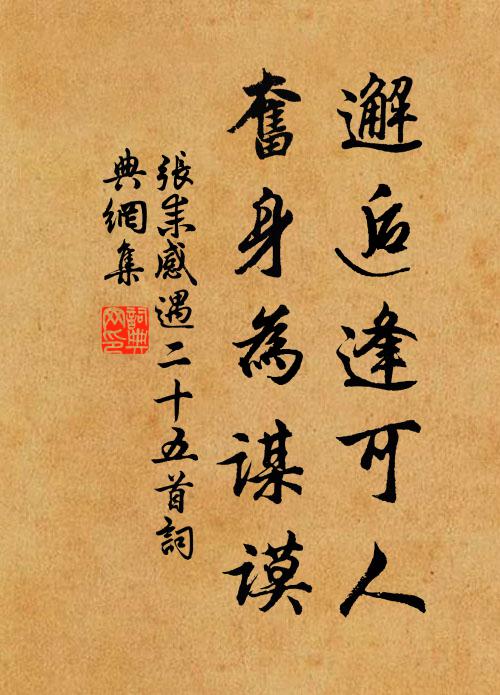 邂逅逢可人
奮身為謀謨
張耒感遇二十五首詞
典網集
詞典網印